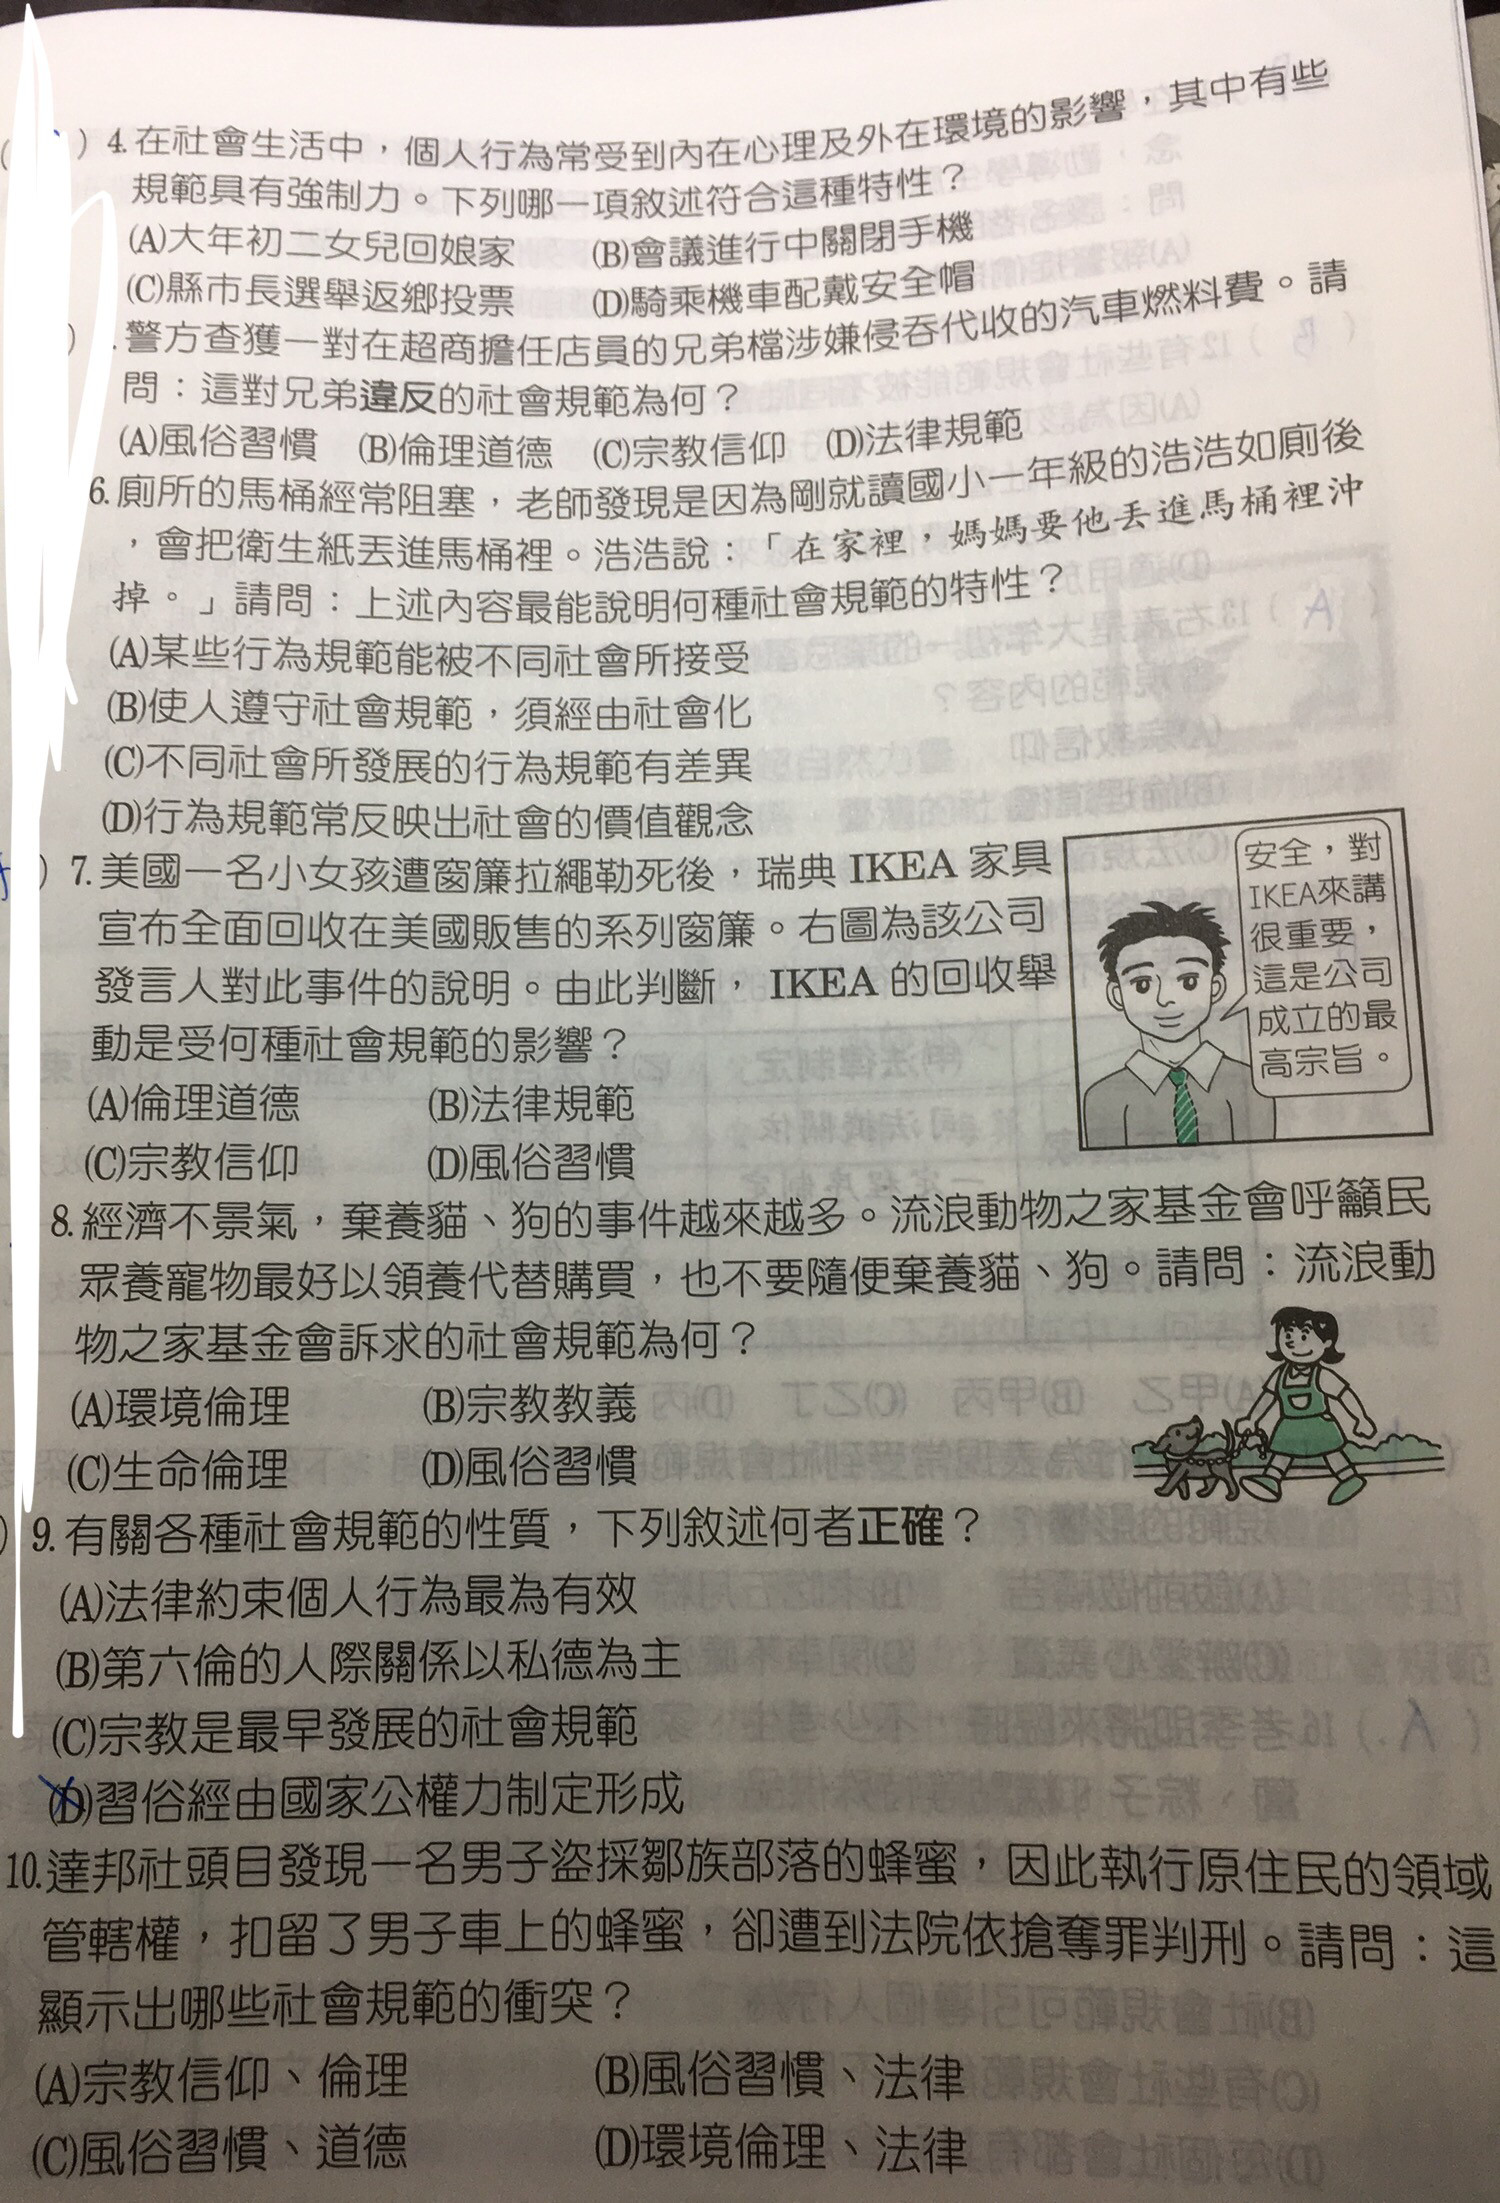 ) 4. 在社會生活中，個人行為常受到內在心理及外在環境的影響，其中有些
規範具有強制力。下列哪一項敘述符合這種特性？
(A)大年初二女兒回娘家 (B)會議進行中關閉手機
(C)縣市長選舉返鄉投票 (D)騎乘機車配戴安全帽
) . 警方查獲一對在超商擔任店員的兄弟檔涉嫌侵吞代收的汽車燃料費。請
問：這對兄弟違反的社會規範為何？
(A)風俗習慣 (B)倫理道德 (C)宗教信仰 (D)法律規範
6. 廁所的馬桶經常阻塞，老師發現是因為剛就讀國小一年級的浩浩如廁後
，會把衛生紙丟進馬桶裡。浩浩說：「在家裡，媽媽要他丟進馬桶裡沖
掉。」請問：上述內容最能說明何種社會規範的特性？
(A)某些行為規範能被不同社會所接受
(B)使人遵守社會規範，須經由社會化
(C)不同社會所發展的行為規範有差異
(D)行為規範常反映出社會的價值觀念
) 7. 美國一名小女孩遭窗簾拉繩勒死後，瑞典 IKEA 家具
宣布全面回收在美國販售的系列窗簾。右圖為該公司
發言人對此事件的說明。由此判斷，IKEA 的回收舉
動是受何種社會規範的影響？
(A)倫理道德 (B)法律規範
(C)宗教信仰 (D)風俗習慣
安全，對
IKEA來講
很重要，
這是公司
成立的最
高宗旨。
8. 經濟不景氣，棄養貓、狗的事件越來越多。流浪動物之家基金會呼籲民
眾養寵物最好以領養代替購買，也不要隨便棄養貓、狗。請問：流浪動
物之家基金會訴求的社會規範為何？
(A)環境倫理 (B)宗教教義
(C)生命倫理 (D)風俗習慣
) 9. 有關各種社會規範的性質，下列敘述何者正確？
(A)法律約束個人行為最為有效
(B)第六倫的人際關係以私德為主
(C)宗教是最早發展的社會規範
(D)習俗經由國家公權力制定形成
10. 達邦社頭目發現一名男子盜採鄒族部落的蜂蜜，因此執行原住民的領域
管轄權，扣留了男子車上的蜂蜜，卻遭到法院依搶奪罪判刑。請問：這
顯示出哪些社會規範的衝突？
(A)宗教信仰、倫理 (B)風俗習慣、法律
(C)風俗習慣、道德 (D)環境倫理、法律